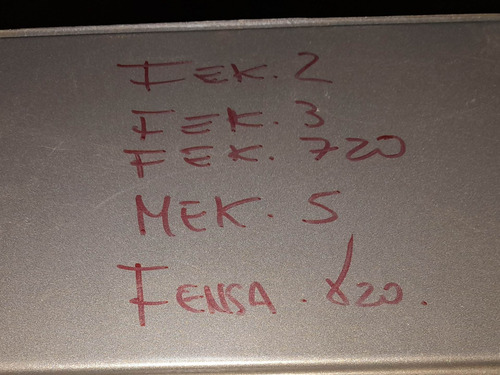 FEK. 2
FEK. 3
FEK. 720
MEK. 5
FENSA. 820.